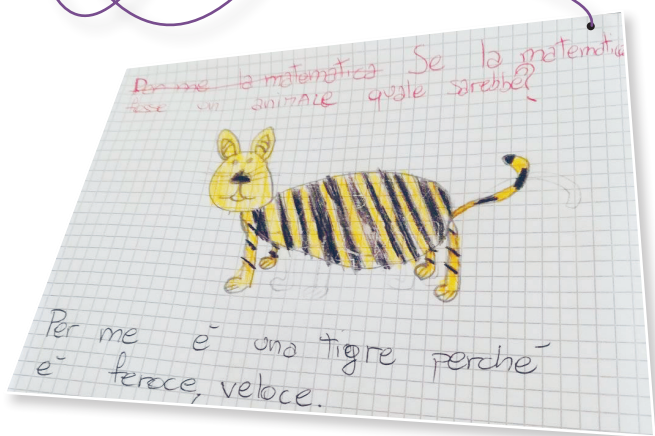 Per me la matematica Se la matematica
fosse un animale quale sarebbe?
Per me è una tigre perché
è feroce, veloce.